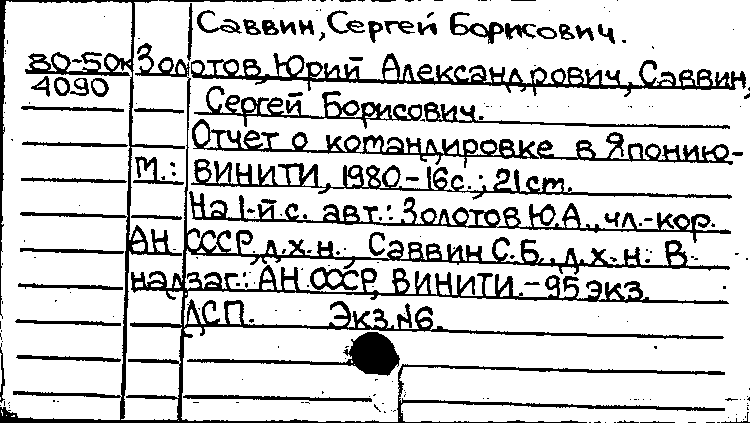 Саввин, Сергей Борисович.
80-50к Золотов, Юрий Александрович, Саввин,
4090 Сергей Борисович.
Отчет о командировке в Японию-
М.: ВИНИТИ, 1980-16с.; 21см.
На 1-й с. авт.: Золотов Ю.А., чл.-кор.
АН СССР, д.х.н., Саввин С.Б., д.х.н. В
надзаг.: АН СССР, ВИНИТИ.-95 экз.
ДСП. Экз.№6.